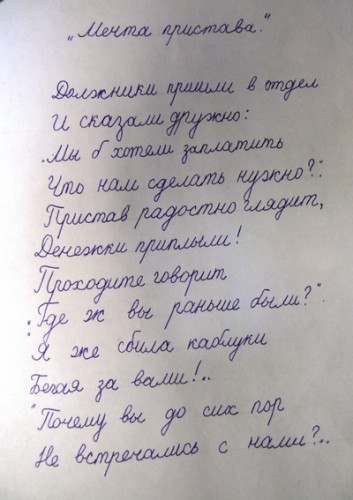 „Мечта пристава."
Должники пришли в отдел
И сказали дружно:
„Мы б хотели заплатить
Что нам сделать нужно?".
Пристав радостно глядит,
Денежки приплыли!
Проходите говорит
"Где ж вы раньше были?"
Я же сбила каблуки
Бегая за вами!..
"Почему вы до сих пор
Не встречались с нами?..